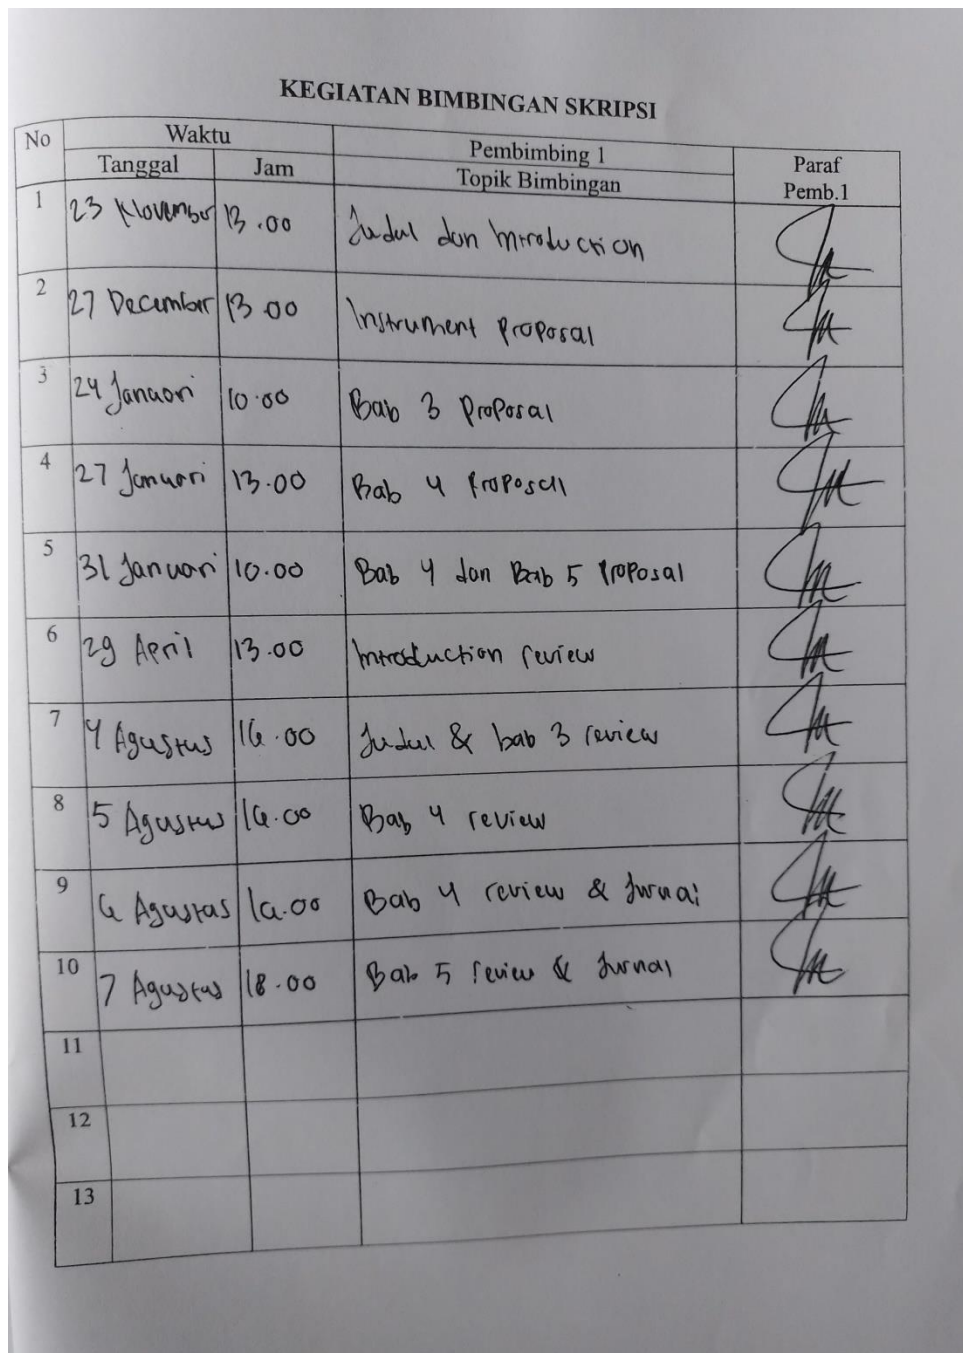 KEGIATAN BIMBINGAN SKRIPSI
No Waktu Pembimbing 1 Paraf Pemb.1
Tanggal Jam Topik Bimbingan
1 23 November 13.00 Judul dan Introduction
2 27 December 13.00 Instrument proposal
3 24 Januari 10.00 Bab 3 Proposal
4 27 Januari 13.00 Bab 4 Proposal
5 31 Januari 10.00 Bab 4 dan Bab 5 Proposal
6 29 April 13.00 Introduction review
7 4 Agustus 16.00 Judul & bab 3 review
8 5 Agustus 16.00 Bab 4 review
9 6 Agustus Bab 4 review & Jurnal
10 7 Agustus 18.00 Bab 5 review & Jurnal
11
12
13